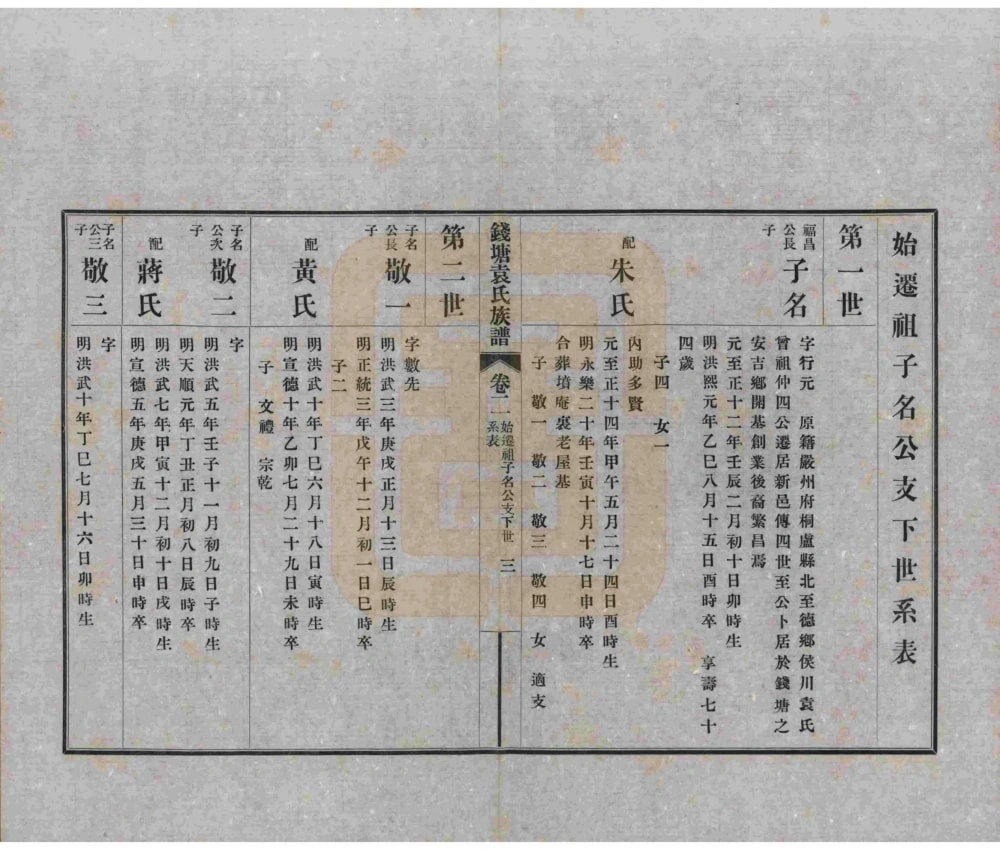 始遷祖子名公支下世系表
第一世
福昌公長子 子名
字行元 原籍嚴州府桐廬縣北至德鄉侯川袁氏
曾祖仲四公遷居新邑傳四世至公卜居於錢塘之
安吉鄉開基創業後裔繁昌焉
元至正十二年壬辰二月初十日卯時生
明洪熙元年乙巳八月十五日酉時卒 享壽七十
四歲
子四 女一
配 朱氏
內助多賢
元至正十四年甲午五月二十四日酉時生
明永樂二十年壬寅十月十七日申時卒
合葬墳庵裏老屋基
子 敬一 敬二 敬三 敬四 女 適支
錢塘袁氏族譜 卷二 始遷祖子名公支下世系表 三
第二世
子名公長子 敬一
字數先
明洪武三年庚戌正月十三日辰時生
明正統三年戊午十二月初一日巳時卒
子二
配 黃氏
明洪武十年丁巳六月十八日寅時生
明宣德十年乙卯七月二十九日未時卒
子 文禮 宗乾
子名公次子 敬二
字
明洪武五年壬子十一月初九日子時生
明天順元年丁丑正月初八日辰時卒
配 蔣氏
明洪武七年甲寅十二月初十日戌時生
明宣德五年庚戌五月三十日申時卒
子名公三子 敬三
字
明洪武十年丁巳七月十六日卯時生